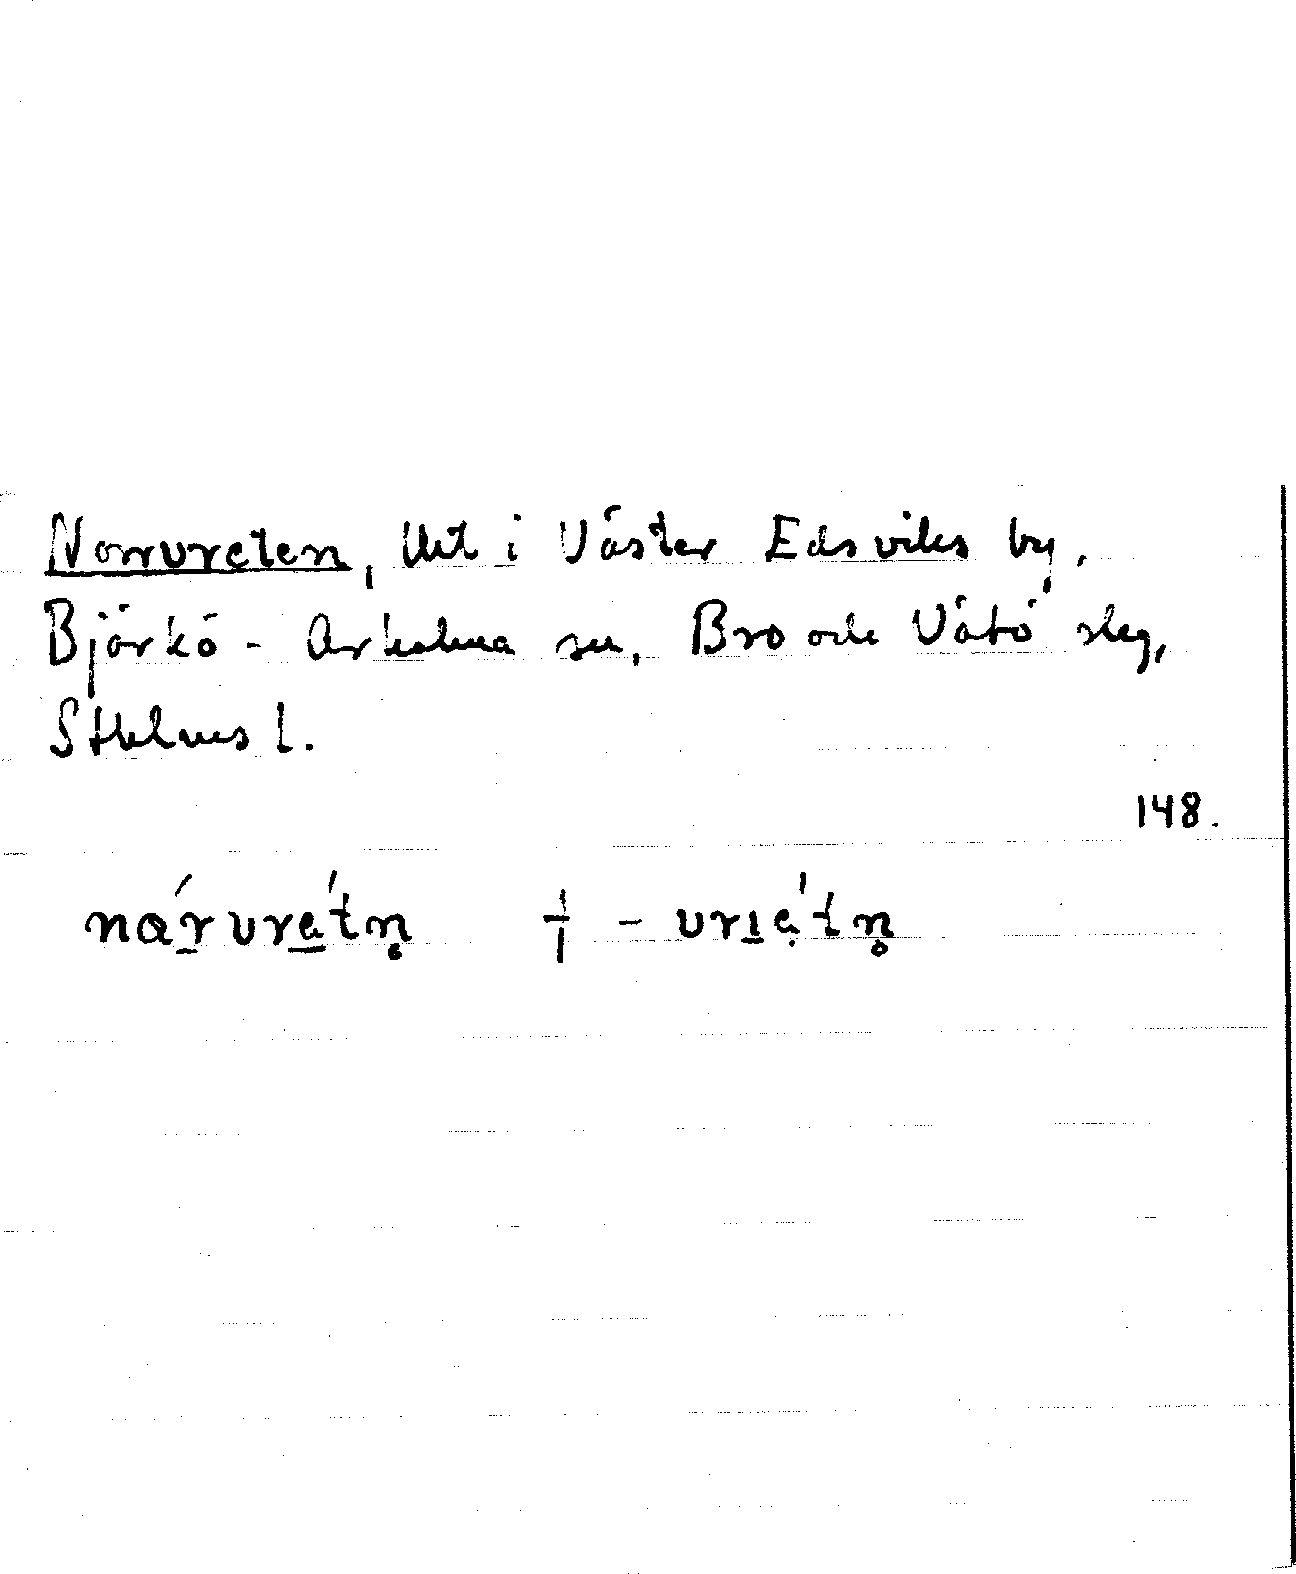 Norrvreten, Urt i Väster Edsviks by,
Björkö-Arholma sn, Bro och Vätö slg,
Sthlms l.
148.
nárvrétn̥ † -vrıẹ́tn̥